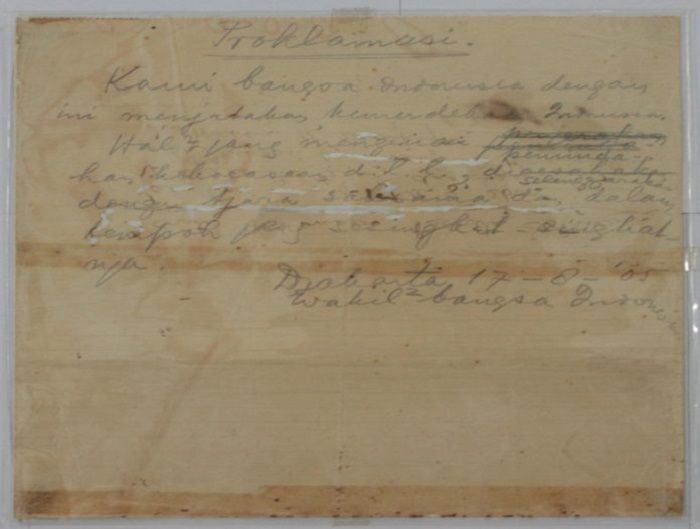 Proklamasi.
Kami bangsa Indonesia dengan
ini menjatakan kemerdekaan Indonesia.
Hal2 jang mengenai
peminda-
han kekoeasaan d.l.l.,
diselenggarakan
dengan tjara saksama dan dalam
tempoh jang sesingkat-singkat-
nja.
Djakarta 17-8-'05
Wakil2 bangsa Indonesia